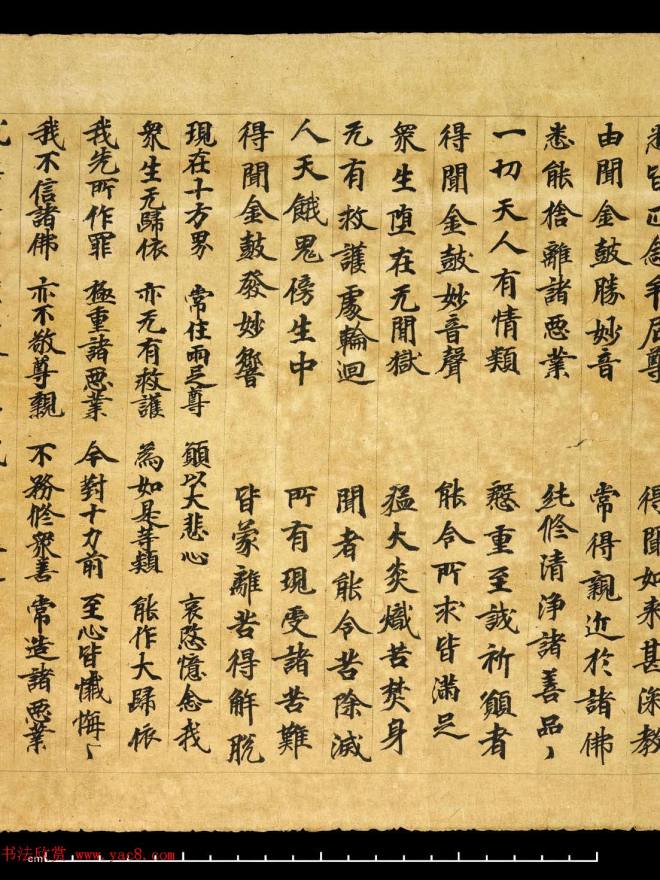 悉皆正念牟尼尊 得聞如来甚深教
由聞金皷勝妙音 常得親近於諸佛
悉能捨離諸惡業 純修清浄諸善品、
一切天人有情類 慇重至誠祈願者
得聞金皷妙音聲 能令所求皆滿足
衆生堕在无間獄 猛火炎熾苦焚身
无有救護處輪迴 聞者能令苦除滅
人天餓鬼傍生中 所有現受諸苦難
得聞金皷發妙響 皆蒙離苦得解脱
現在十方界 常住兩足尊 願以大悲心 哀愍憶念我
衆生无歸依 亦无有救護 為如是等類 能作大歸依
我先所作罪 極重諸惡業 今對十力前 至心皆懺悔、
我不信諸佛 亦不敬尊親 不務修衆善 常造諸惡業
cm
书法欣赏 www.yac8.com